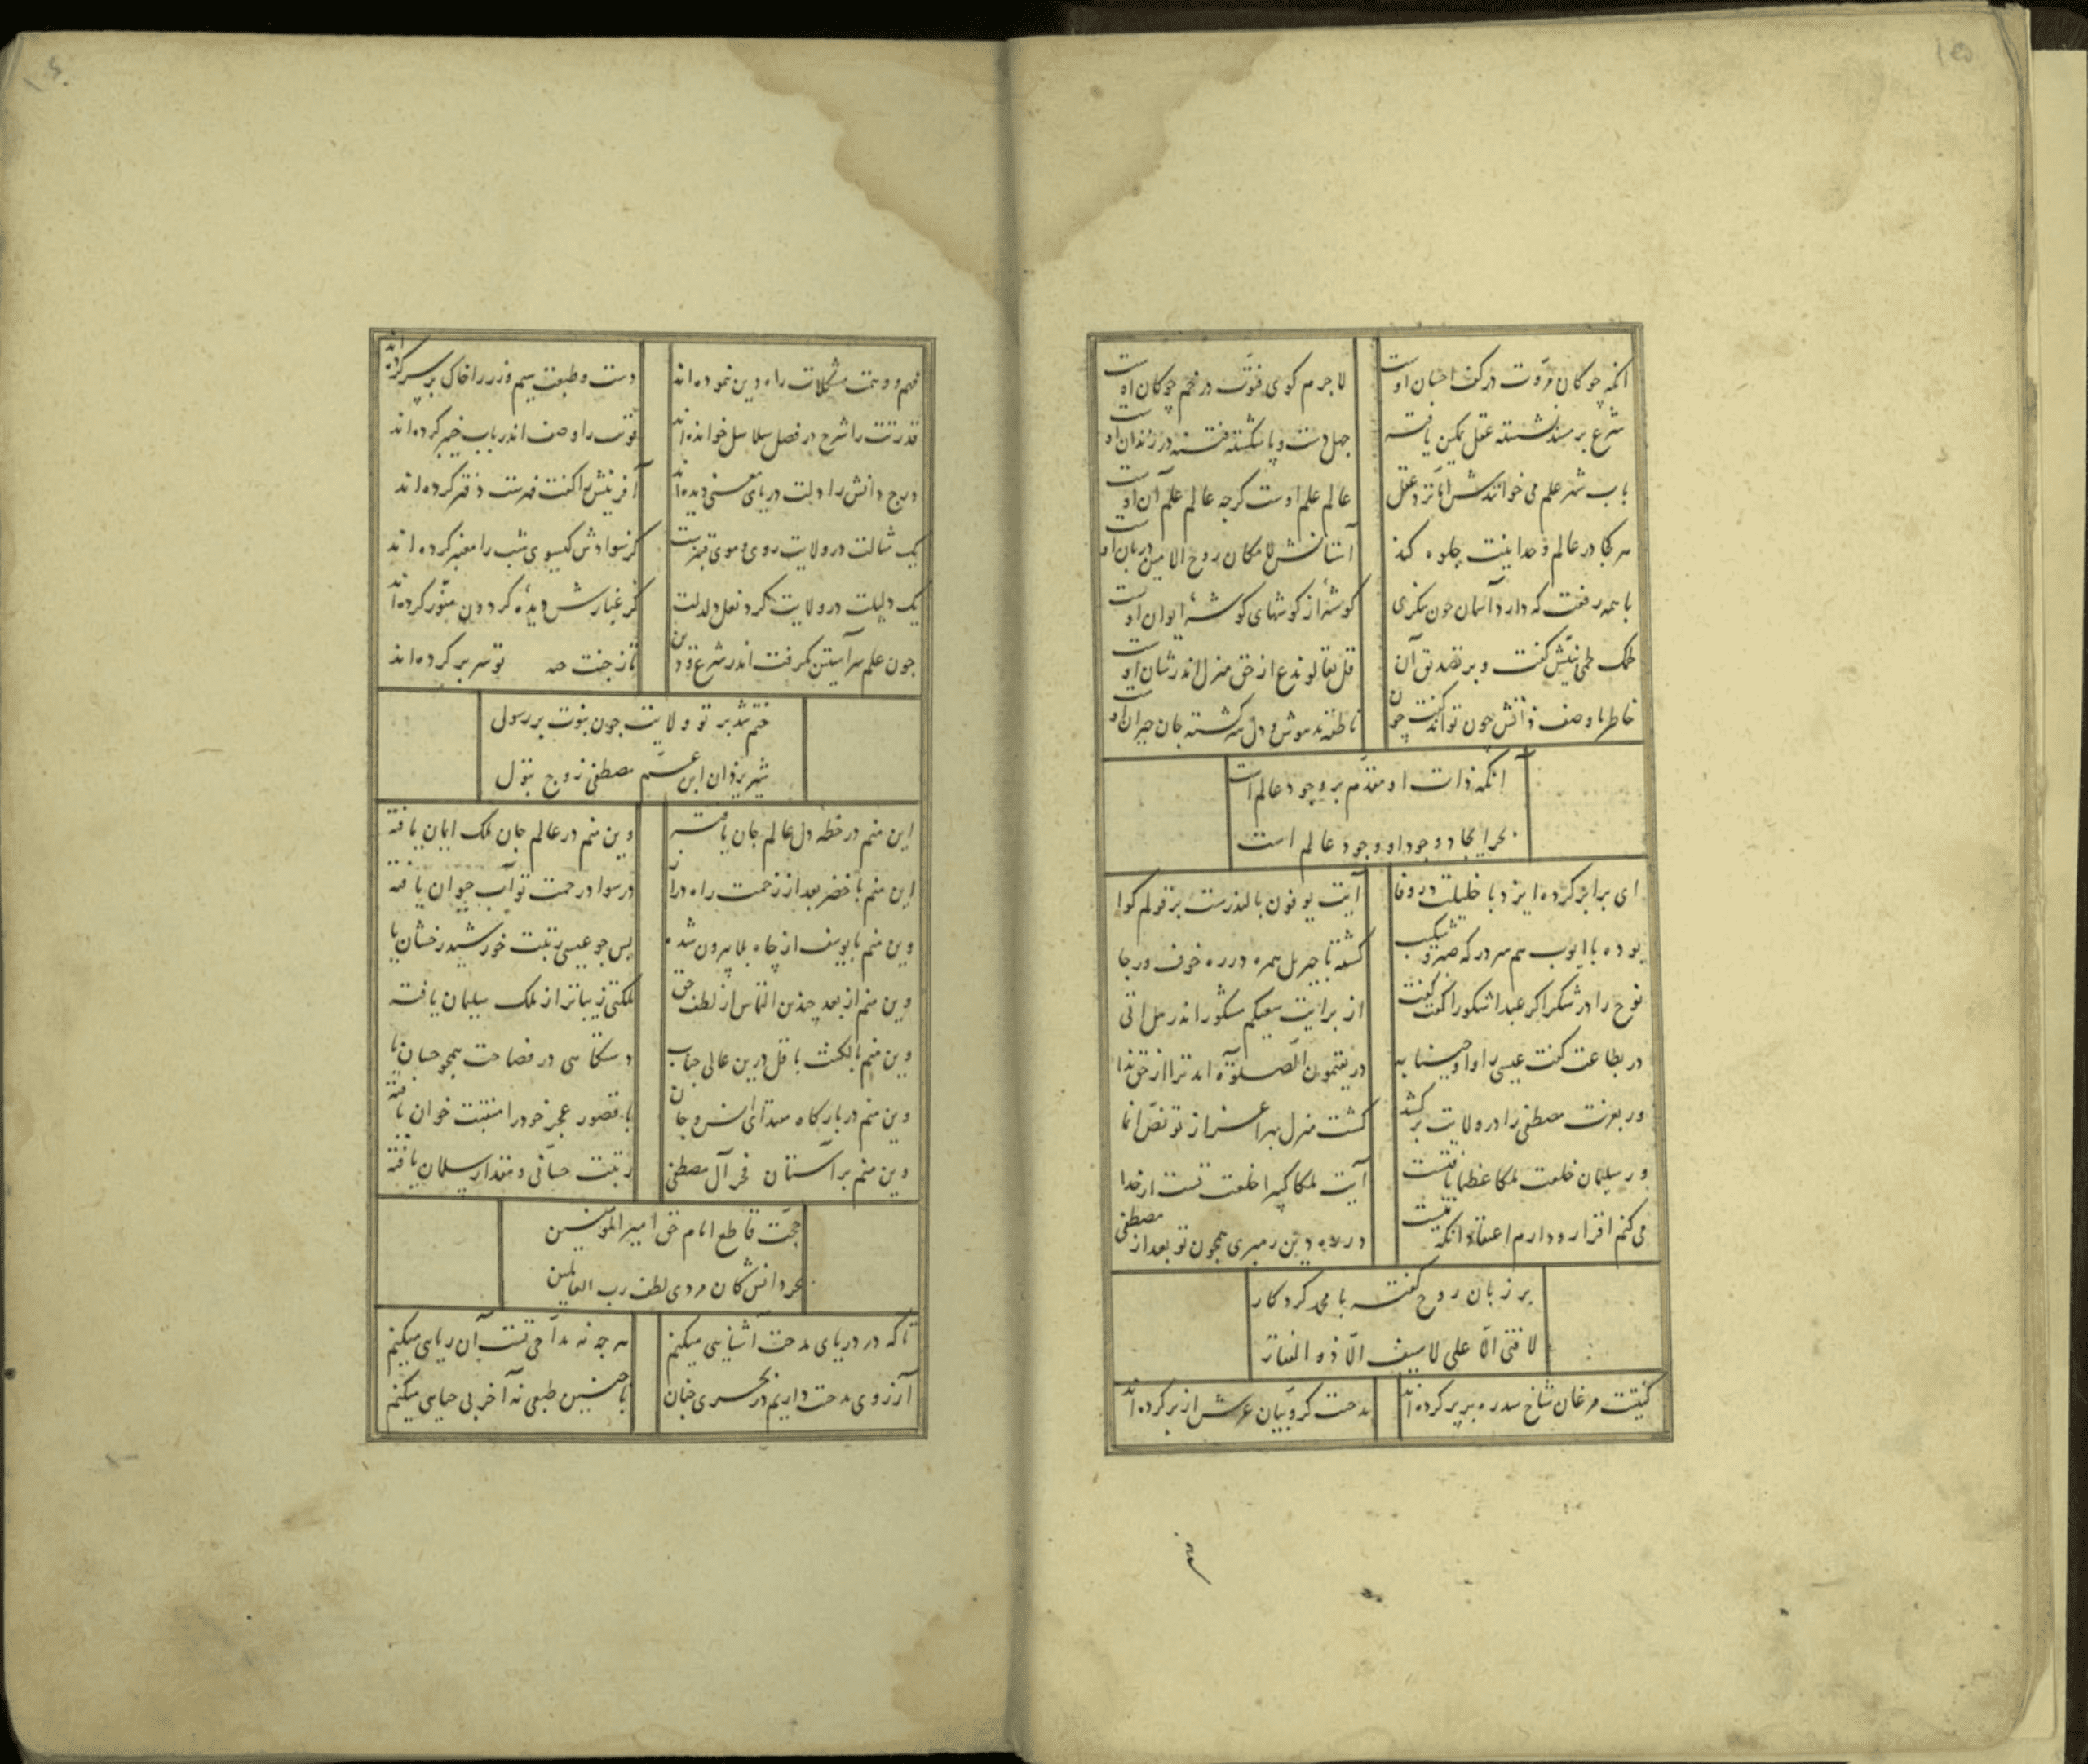 ۱۵
انکه چوکان مروت در کف احسان اوست
لاجرم کوی فتوت در خم چوکان اوست
شرع بر مسند نشسته عقل تمکین یافته
جهل دست و پا شکسته فتنه در زندان اوست
باب شهر علم می خوانندش اما نزد عقل
عالم علم اوست کرچه عالم علم آن اوست
هر کجا در عالم وحدانیت جلوه کند
آستانش لامکان روح الامین دربان اوست
با همه رفعت که دارد آسمان چون بنکری
کوشهٔ از کوشهای کوشهٔ ایوان اوست
لحمک لحمی نبیش کفت و بر تصدیق آن
قل تعالوا ندع از حق منزل اندر شان اوست
خاطر ما وصف ذاتش چون تواند کفت چون
ناطقه مدهوش و دل سرکشته جان حیران اوست
آنکه ذات او مقدم بر وجود عالم است
بحر ایجاد وجود او وجود عالم است
ای برابر کرده ایزد با خلیلت در وفا
آیت یوفون بالنذرست بر قولم کوا
بوده با ایوب هم سر در که صبر و شکیب
کشته با جبریل همره در ره خوف و رجا
نوح را در شکر اکر عبدا شکورا کفت کفت
از برایت سعیکم مشکور اندر هل اتی
در بطاعت کفت عیسی را و اوصینا به
در یقیمون الصلوة آمد ترا از حق ندا
ور بعزت مصطفی را در ولایت برکشد
کشت منزل بهر اعزاز تو نص انما
ور سلیمان خلعت ملکا عظیما یافتست
آیت ملکا کبیرا خلعت تست از خدا
می کنم اقرار و دارم اعتقاد انکه نیست
در ره دین رهبری همچون تو بعد از مصطفی
بر زبان روح کفته با محمد کردکار
لا فتی الا علی لا سیف الا ذو الفقار
کنیتت مرغان شاخ سدره بر پر کرده اند
مدحت کروبیان عرش از بر کرده اند
۱۶
فهم و وهمت مشکلات راه دین نموده اند
دست و طبعت سیم و زر را خاک بر سر کرده اند
قدرتت را شرح در فصل سلاسل خوانده اند
قوتت را وصف اندر باب خیبر کرده اند
درج دانش را دلت دریای معنی دیده اند
آفرینش را کفت فهرست دفتر کرده اند
یک مثالت در ولایت روی و موی قنبرست
کز سوادش کیسوی شب را معنبر کرده اند
یک دلیلت در ولایت کرد نعل دلدلت
کز غبارش دیدهٔ کردون منور کرده اند
چون علم سر آستین بکرفت اندر شرع و دین
تاز جنت حه تو سر بر کرده اند
ختم شد بر تو ولایت چون نبوت بر رسول
شیر یزدان ابن عم مصطفی زوج بتول
این منم در خطه دل عالم جان یافته
وین منم در عالم جان ملک ایمان یافته
این منم با خضر بعد از زحمت راه دراز
در سواد رحمت تو آب حیوان یافته
وین منم با یوسف از چاه بلا بیرون شده
پس چو عیسی رتبت خورشید رخشان یافته
وین منم از بعد چندین التماس از لطف حق
ملکتی زیباتر از ملک سلیمان یافته
وین منم بالکنت باقل درین عالی جناب
دستکاهی در فصاحت همچو حسان یافته
وین منم در بارکاه مقتدای انس و جان
با قصور عجز خود را منقبت خوان یافته
وین منم بر آستان فخر آل مصطفی
رتبت حسانی و مقدار سلمان یافته
حجت قاطع امام حق امیر المؤمنین
بحر دانش کان مردی لطف رب العالمین
تا که در دریای مدحت آشنایی میکنم
هر چه نه مداحی تست آن ریایی میکنم
آرزوی مدحت داریم در بحری چنان
با چنین طبعی نه آخر بی حیایی میکنم